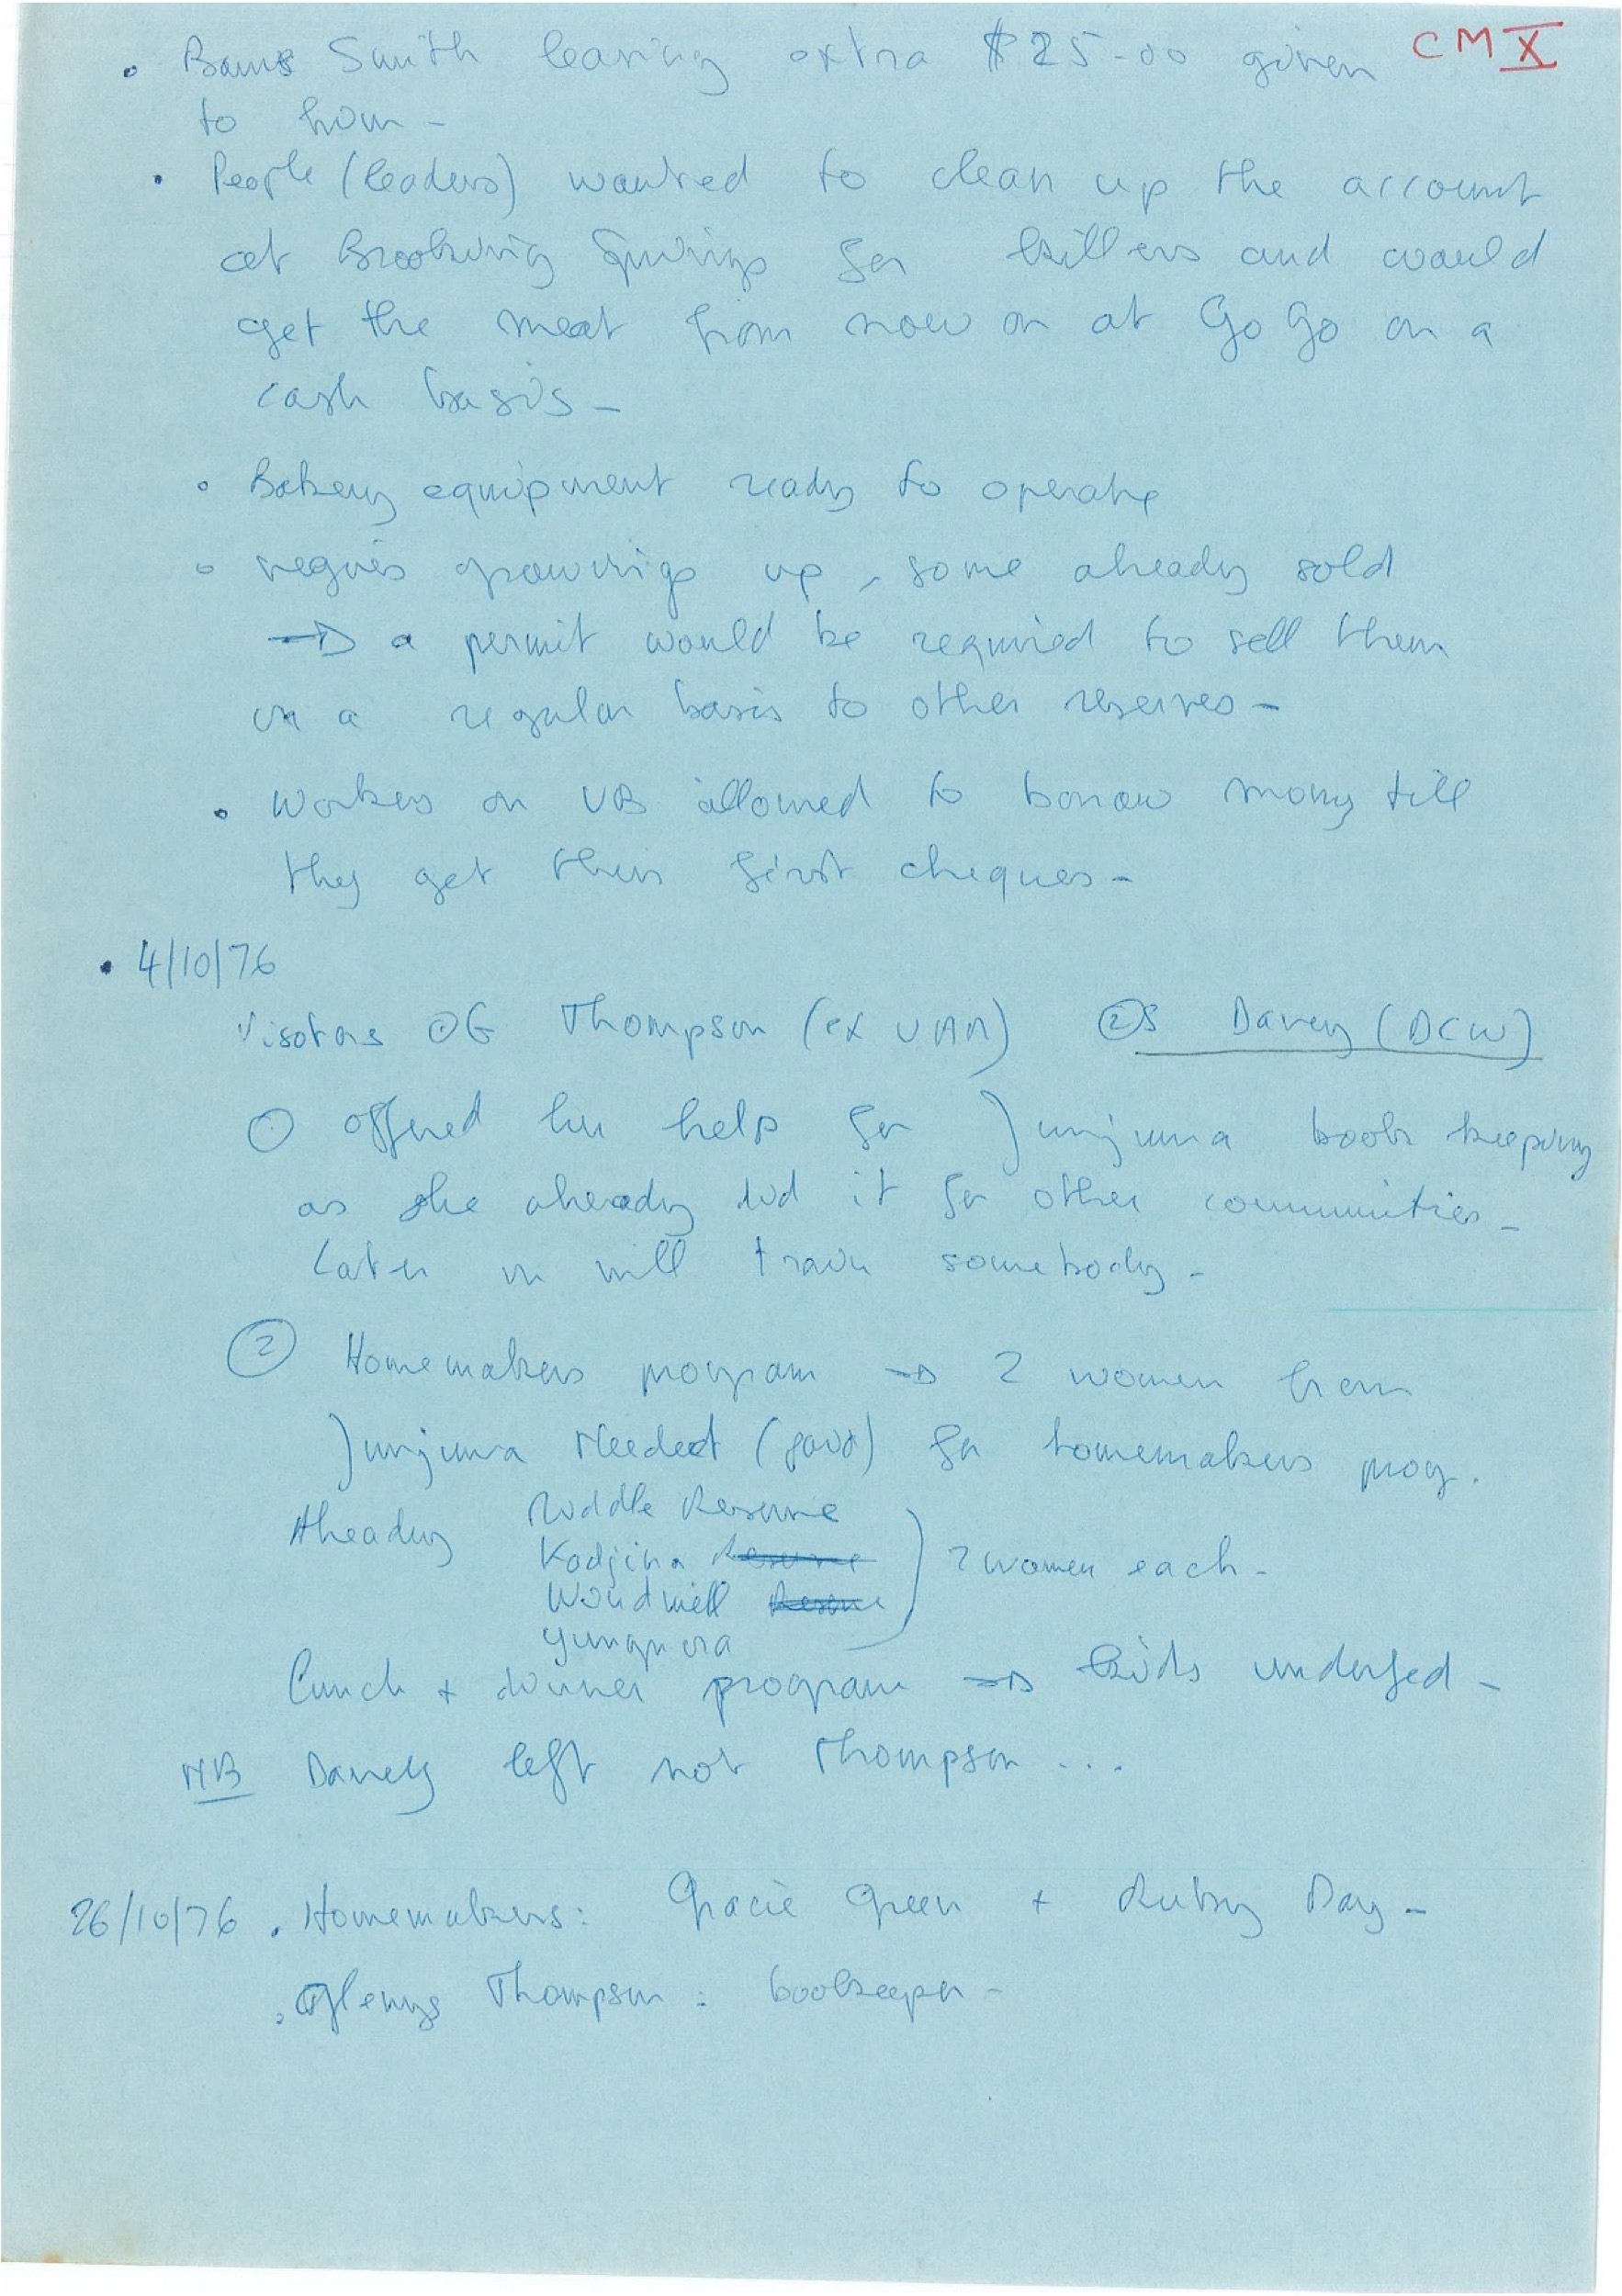 CM X
• Smith leaving extra $25-00 given
to him -
• People (leaders) wanted to clean up the account
at Brooking Springs for killers and would
get the meat from now on at Go Go on a
cash basis -
• Bakery equipment ready to operate
• vegies growings up, some already sold
→ a permit would be required to sell them
on a regular basis to other reserves -
• Workers on UB allowed to borrow money till
they get their first cheques -
• 4/10/76
Visitors ① G Thompson (ex UAM) ② S Davey (DCW)
① offered her help for Junjuwa book keeping
as she already did it for other communities -
Later on will train somebody -
② Homemakers program → 2 women from
Junjuwa needed (paid) for homemakers prog.
Already Middle Reserve
Kadjina Reserve
Windmill Reserve
Yungngora
} 2 women each -
Lunch + dinner program → kids underfed -
NB Davey left not Thompson ...
26/10/76 . Homemakers: Gracie Green + Ruby Day -
. Glenys Thompson : bookeeper -